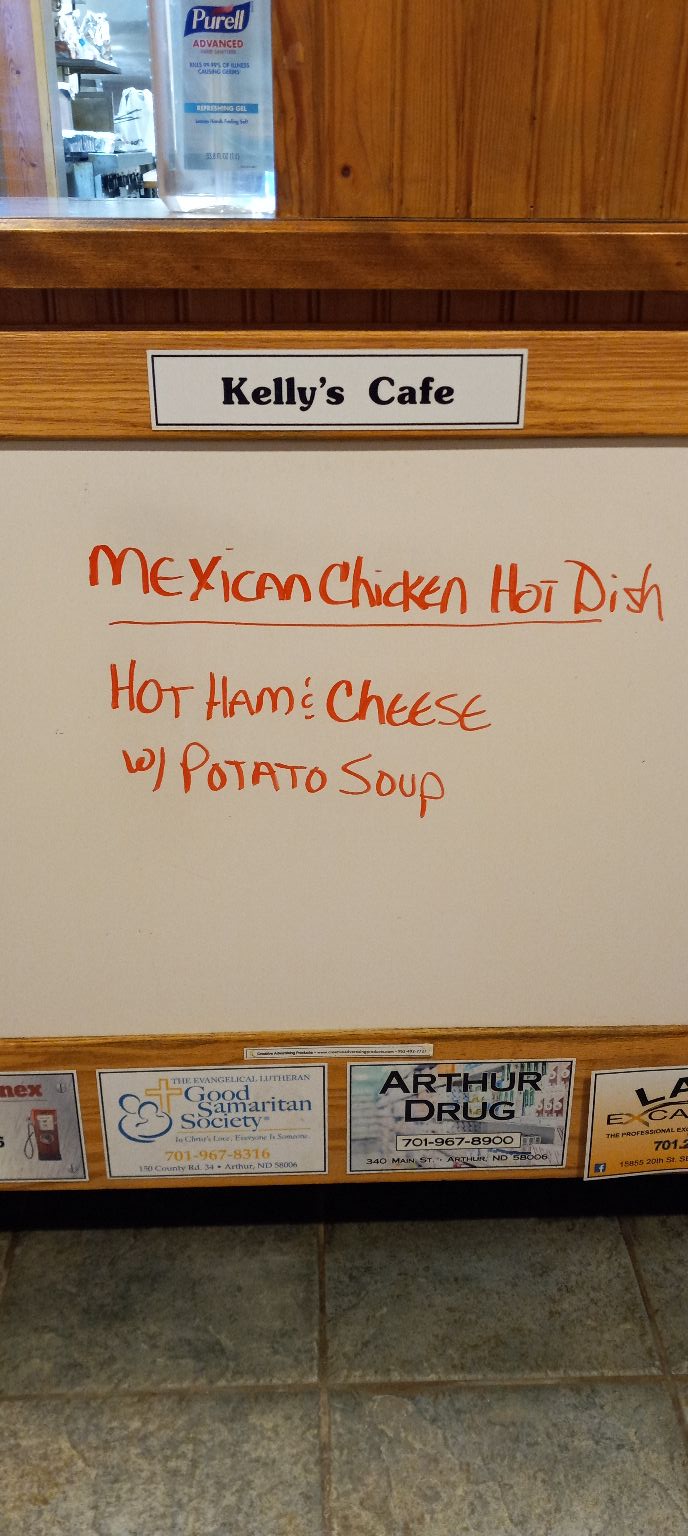 Purell
ADVANCED
HAND SANITIZER
KILLS 99.99% OF ILLNESS
CAUSING GERMS
REFRESHING GEL
Leaves Hands Feeling Soft
33.8 FL OZ (1 L)
Kelly's Cafe
MEXICAN Chicken HOT Dish
HOT HAM & CHEESE
W/ POTATO SOUP
Creative Advertising Products • www.creativeadvertisingproducts.com •
nex
THE EVANGELICAL LUTHERAN
Good
Samaritan
Society®
In Christ's Love, Everyone Is Someone.
701-967-8316
150 County Rd. 34 • Arthur, ND 58006
ARTHUR
DRUG
701-967-8900
340 MAIN ST. • ARTHUR, ND 58006
LA
EXCA
THE PROFESSIONAL EXC
701.2
15855 20th St. SE